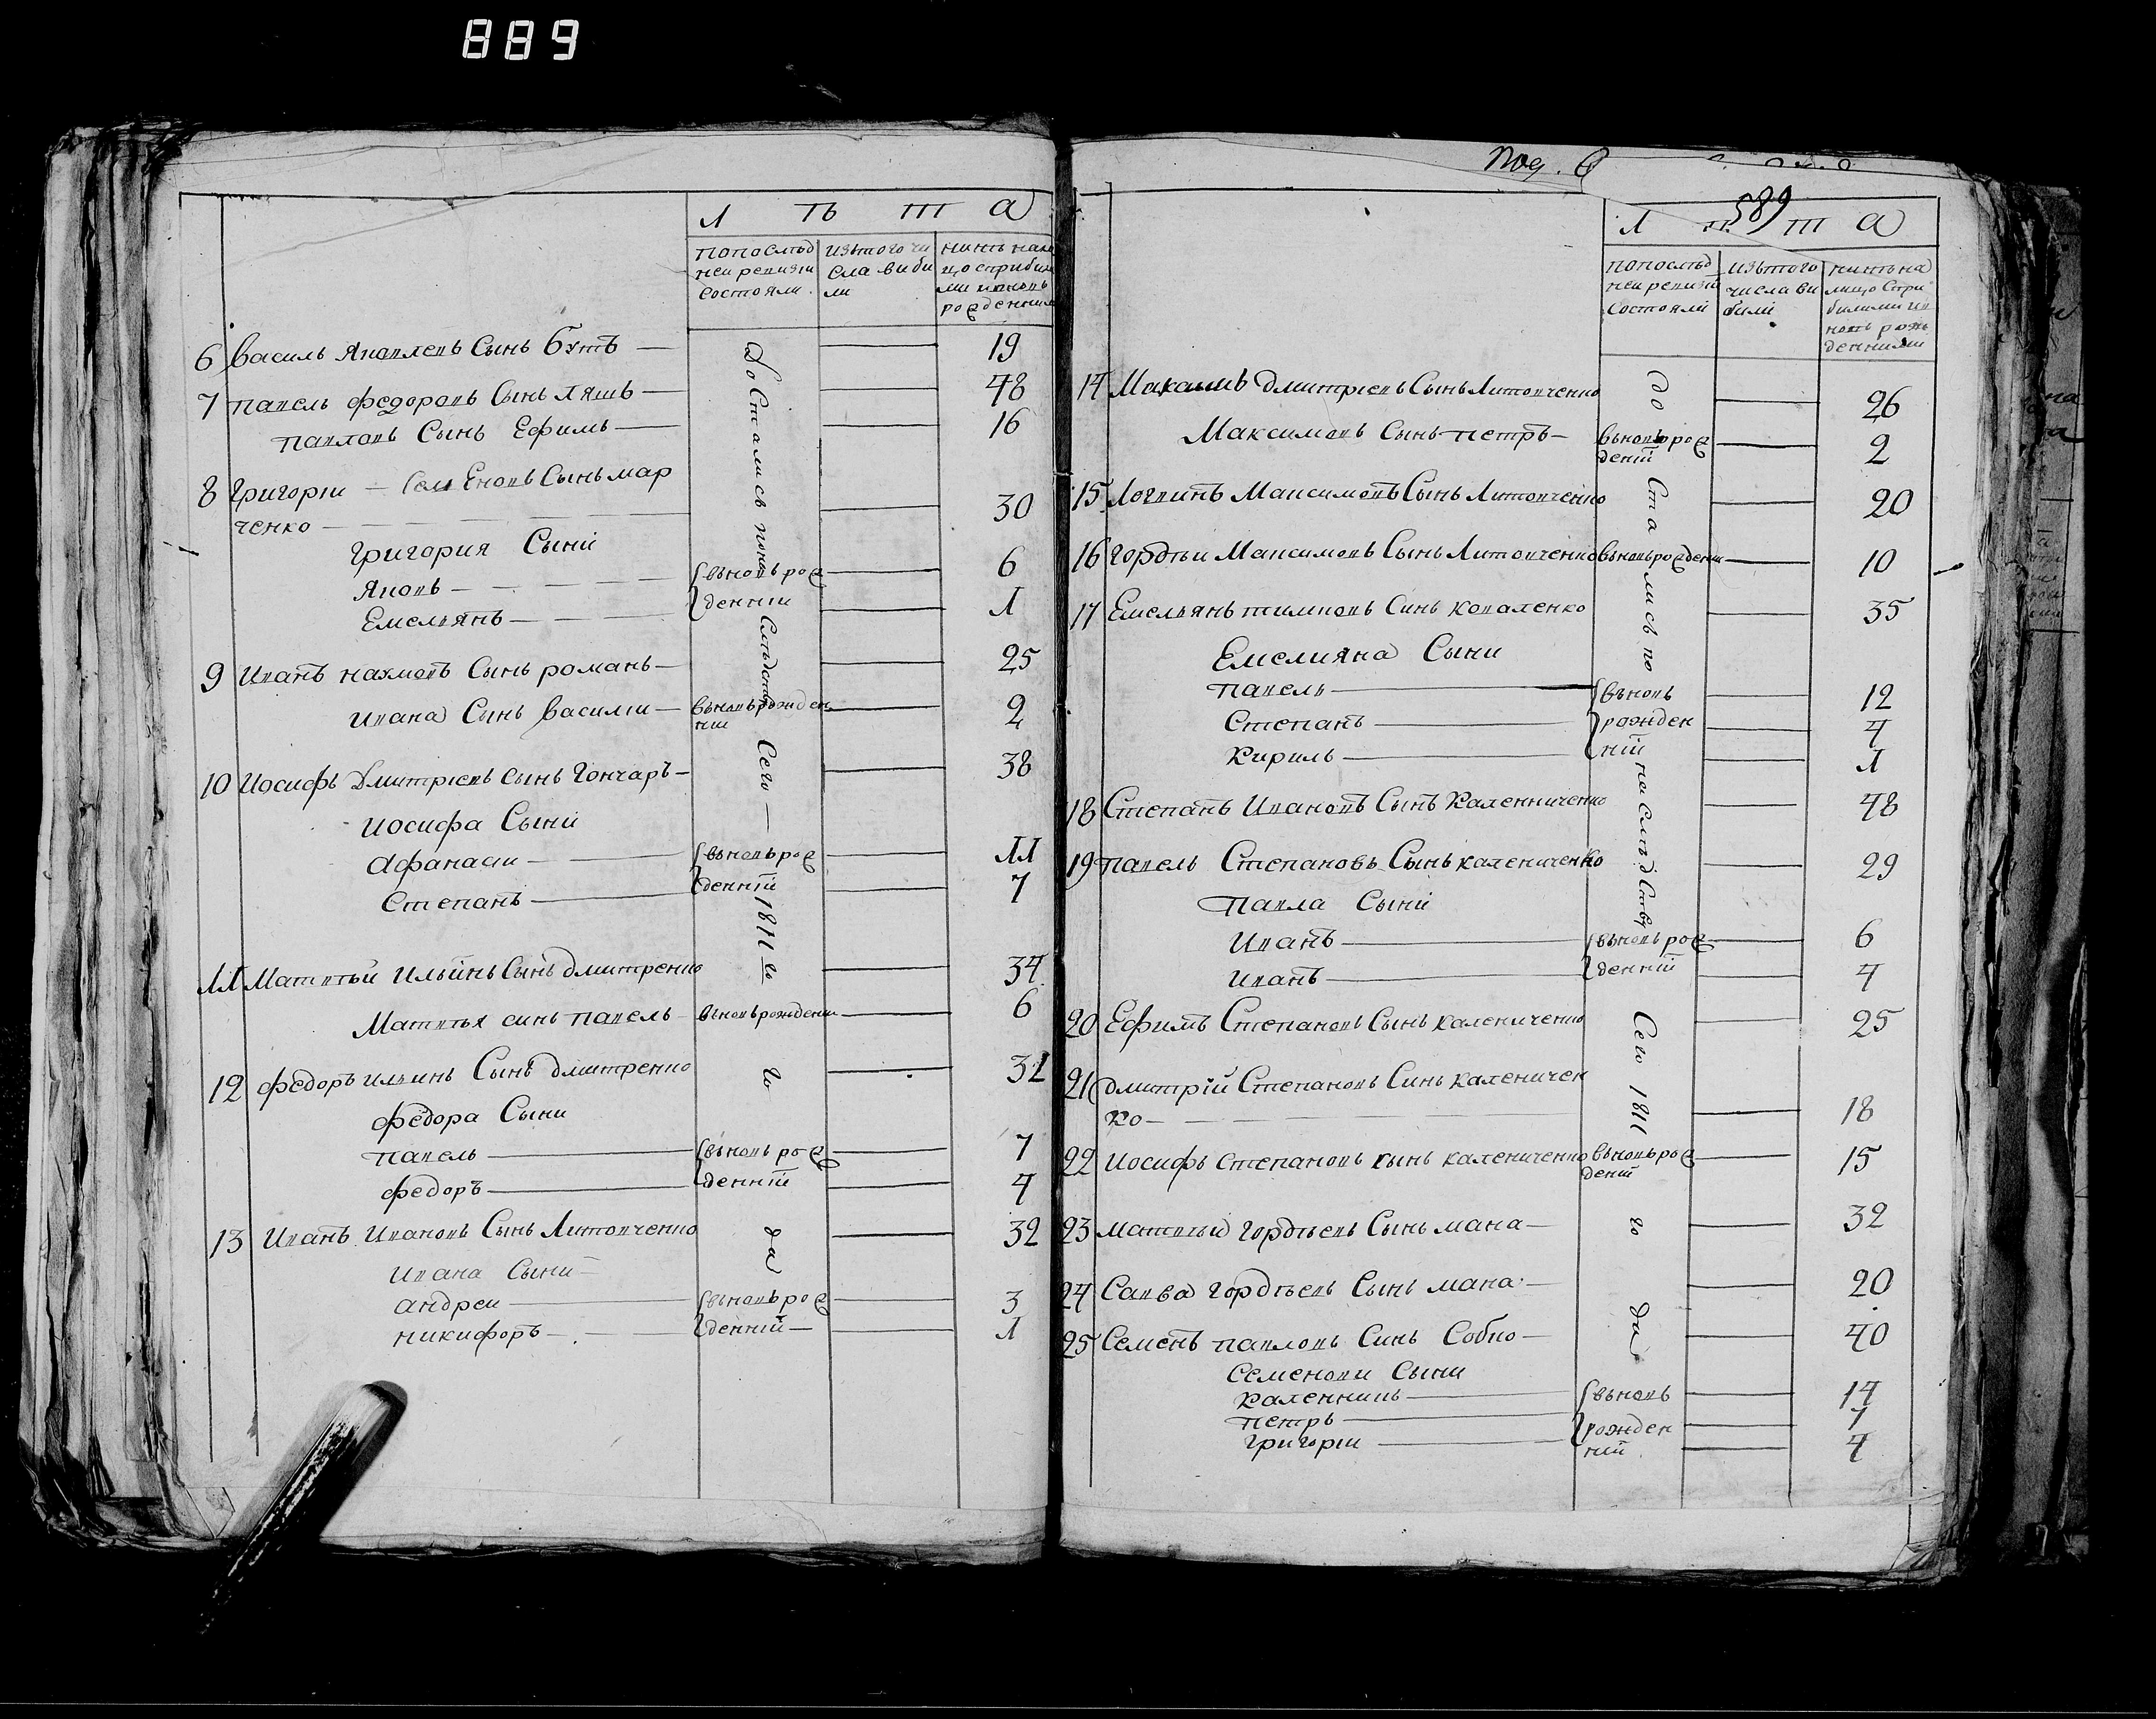 889
Л Ѣ Т А
попослѣд
неи ревизіи
состояли
изътого чи
сла виби
ли
нинѣ нали
цо сприбил
ми ивновь
рожденними
6 Василь Яковлевъ Сынъ Бутъ — 19
7 Павелъ Федоровъ Сынъ Ляшъ — 48
Павловъ Сынъ Ефимъ — 16
8 Григории — Семеновъ Сынъ мар
ченко — 30
Григория Сыни
Яковъ — вьновь рож 6
Емельянъ — деннии 1
9 Иванъ нахмовъ Сынъ романъ — 25
Ивана Сынъ Василии — вьновьрожден
нии 2
10 Иосифъ Дмитриевъ сынъ Гончаръ — 38
Иосифа Сыни
Афанасии — вьновьрож 11
Степанъ — деннїй 7
11 Матвѣй Ильинъ Сынъ Дмитренко 34
Матвѣя синъ Павелъ вьновьрождени 6
12 Федоръ ильинъ Сынъ дмитренко 32
Федора Сыни
Павелъ — вьновь рож 7
Федоръ — деннїй 4
13 Иванъ Ивановъ Сынъ Литовченко 32
Ивана Сыни —
андреи — вьновьрож 3
никифоръ — деннїй — 1
Достались понаслѣдству
Сего — 1811 го
го
да
Под. 6
589
Л ѣ Т А
попослѣд
неи ревизіи
состояли
изътого
числа ви
били
нинѣ на
лицо спри
билими ив
новь рож
денними
14 Максимъ Дмитриевъ Сынъ Литовченко 26
Максимовъ Сынъ петръ — вьновьрож
деній 2
15 Логвинъ Максимовъ Сынъ Литовченко 20
16 Гордѣи Максимовъ Сынъ Литовченко вьновьрождени 10
17 Емельянъ тимковъ Синъ коваленко 35
Емелияна Сыни
Павелъ — вьновь 12
Степанъ — рожден 4
Кирилъ — нїй 1
18 Степанъ Ивановъ Сынъ Каленниченко 48
19 Павелъ Степановъ Сынъ калениченко 29
Павла Сыни
Иванъ — вьновьрож 6
Иванъ — деннїй 4
20 Ефимъ Степановъ Сынъ калениченко 25
21 Дмитрїй Степановъ Синъ каленичен
ко — 18
22 Иосифъ Степановъ сынъ калениченко вьновьрож
деній 15
23 Матвѣй Гордѣевъ Сынъ мана — 32
24 Савва Гордѣевъ Сынъ мана — 20
25 Семенъ Павловъ Синъ Собко — 40
Семенови Сыни
Каленникъ — вьновь 14
Петръ — рожден 7
Григории — ній 4
до
стались по
наслѣдству
Сего 1811
го
да